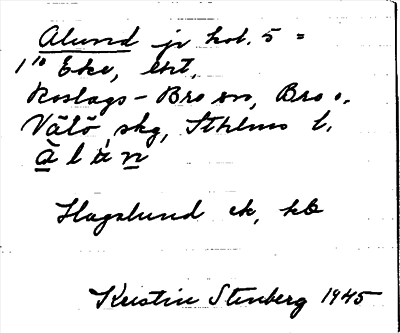 Alund jr kol. 5 =
1/10 Eke, ekt,
Roslags-Bro sn, Bro o.
Vätö skg, Sthlms l.
a l u n
Hagalund ek, kb
Kerstin Stenberg 1945